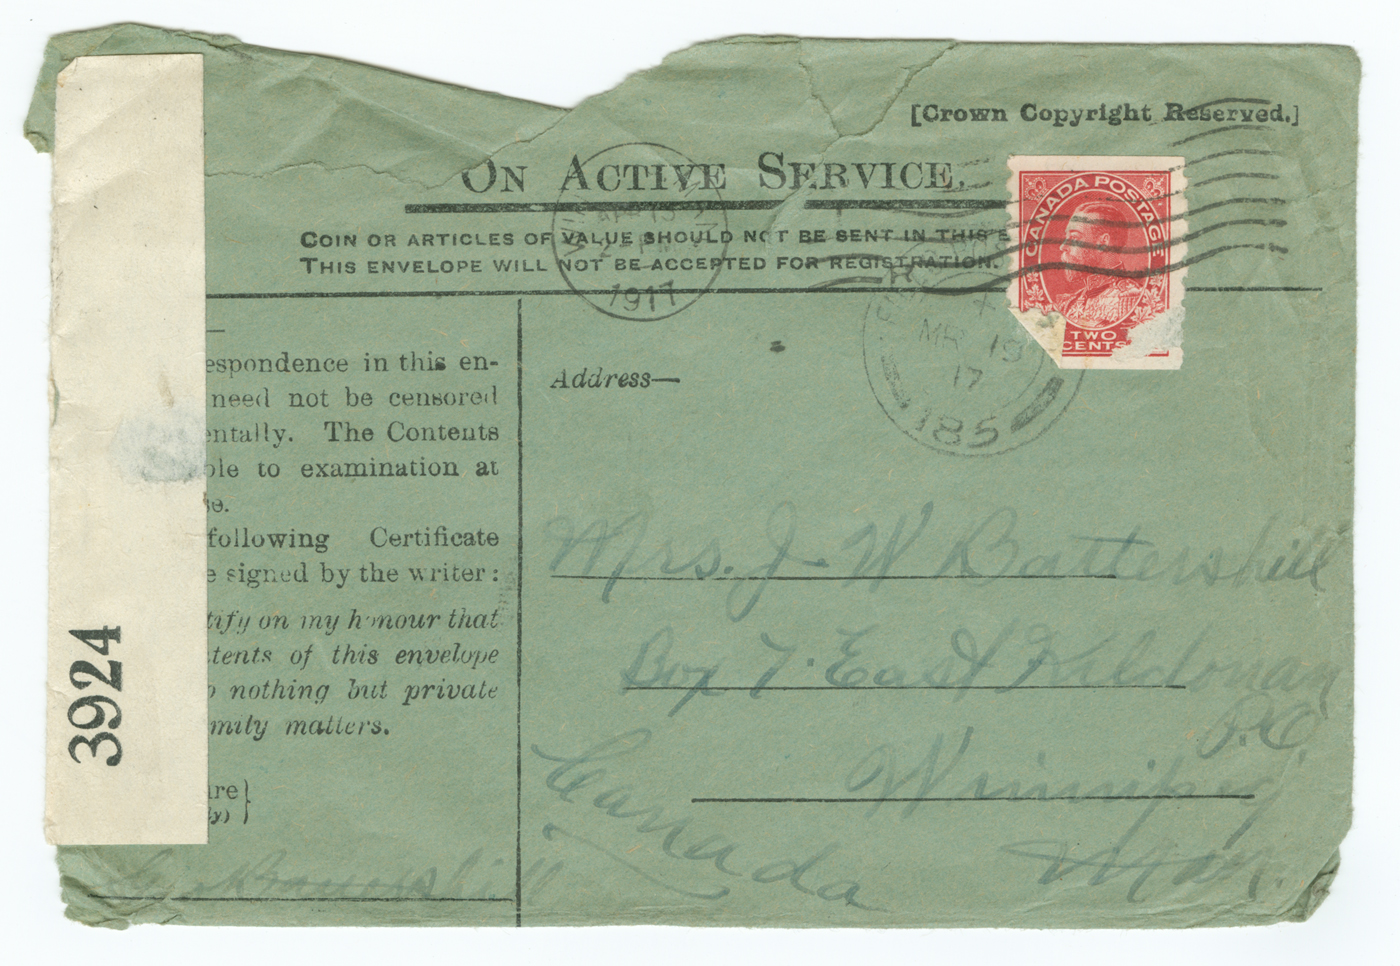 [Crown Copyright Reserved.]
ON ACTIVE SERVICE.
COIN OR ARTICLES OF VALUE SHOULD NOT BE SENT IN THIS E
THIS ENVELOPE WILL NOT BE ACCEPTED FOR REGISTRATION.
APR 13
1917
CANADA POSTAGE
TWO
CENTS
MR 19
17
185
espondence in this en-
need not be censored
entally. The Contents
ble to examination at
se.
following Certificate
e signed by the writer:
tify on my honour that
tents of this envelope
o nothing but private
mily matters.
ure }
ly) }
3924
Address—
Mrs. J. W Battershill
Box 7. East Kildonan
P.O.
Winnipeg
Man.
Canada
Battershill